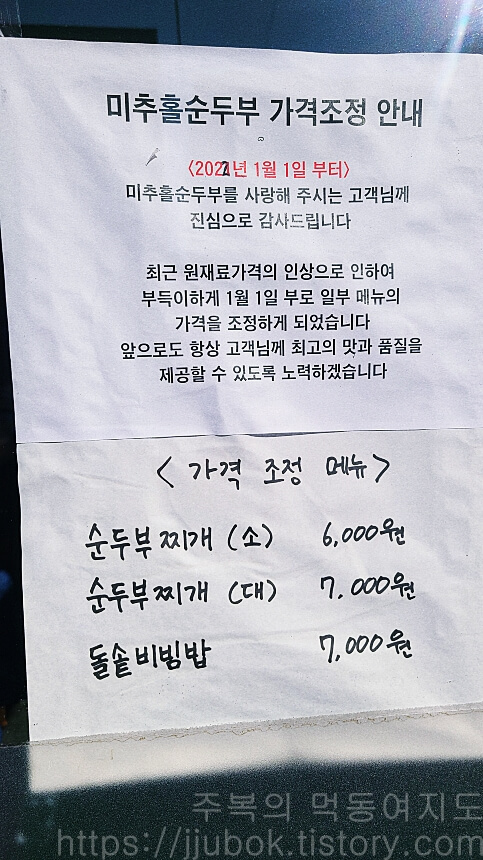 미추홀순두부 가격조정 안내
<2021년 1월 1일 부터>
미추홀순두부를 사랑해 주시는 고객님께
진심으로 감사드립니다
최근 원재료가격의 인상으로 인하여
부득이하게 1월 1일 부로 일부 메뉴의
가격을 조정하게 되었습니다
앞으로도 항상 고객님께 최고의 맛과 품질을
제공할 수 있도록 노력하겠습니다
< 가격 조정 메뉴 >
순두부찌개 (소) 6,000원
순두부찌개 (대) 7,000원
돌솥비빔밥 7,000원
주복의 먹동여지도
https://jjubok.tistory.com